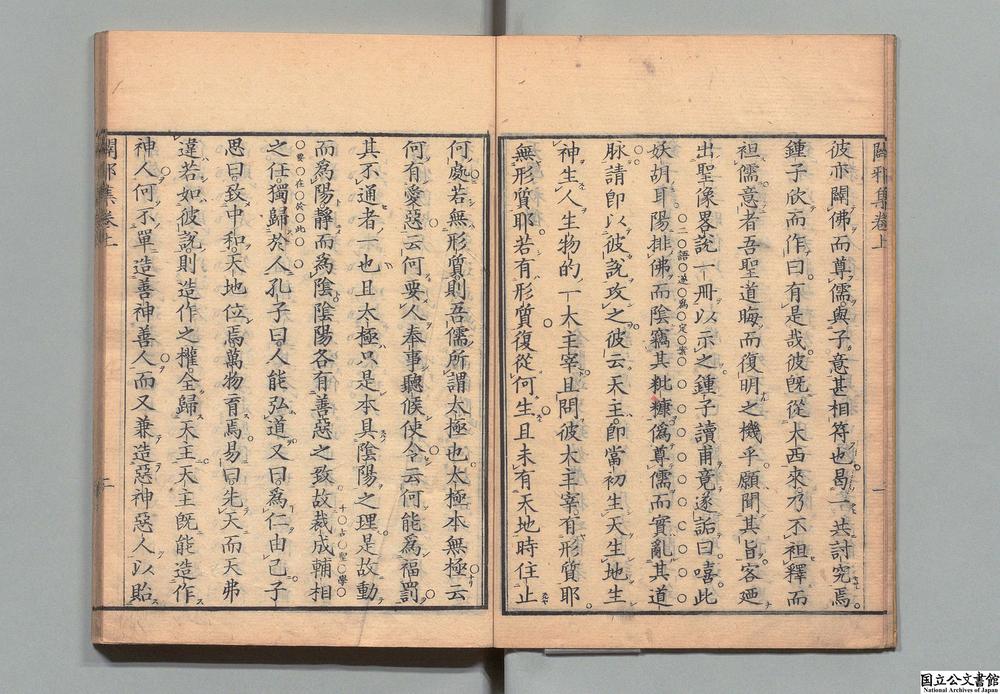 闢邪集卷上
彼亦闢佛而尊儒與子意甚相符也曷一共討究焉
鍾子欣而作曰有是哉彼旣從大西來乃不袒釋而
袒儒意者吾聖道晦而復明之機乎願聞其旨客廼
出聖像畧說一冊以示之鍾子讀甫竟遂詬曰嘻此
妖胡耳陽排佛而陰竊其粃糠僞尊儒而實亂其道
脉請卽以彼說攻之彼云天主卽當初生天生地生
神生人生物的一大主宰且問彼大主宰有形質耶
無形質耶若有形質復從何生且未有天地時住止
何處若無形質則吾儒所謂太極也太極本無極云
何有愛惡云何要人奉事聽候使令云何能爲福罰
其不通者一也且太極只是本具陰陽之理是故動
而爲陽靜而爲陰陰陽各有善惡之致故裁成輔相
之任獨歸於人孔子曰人能弘道又曰爲仁由己子
思曰致中和天地位焉萬物育焉易曰先天而天弗
違若如彼說則造作之權全歸天主天主旣能造作
神人何不單造善神善人而又兼造惡神惡人以貽
闢邪集卷上
国立公文書館
National Archives of Japan